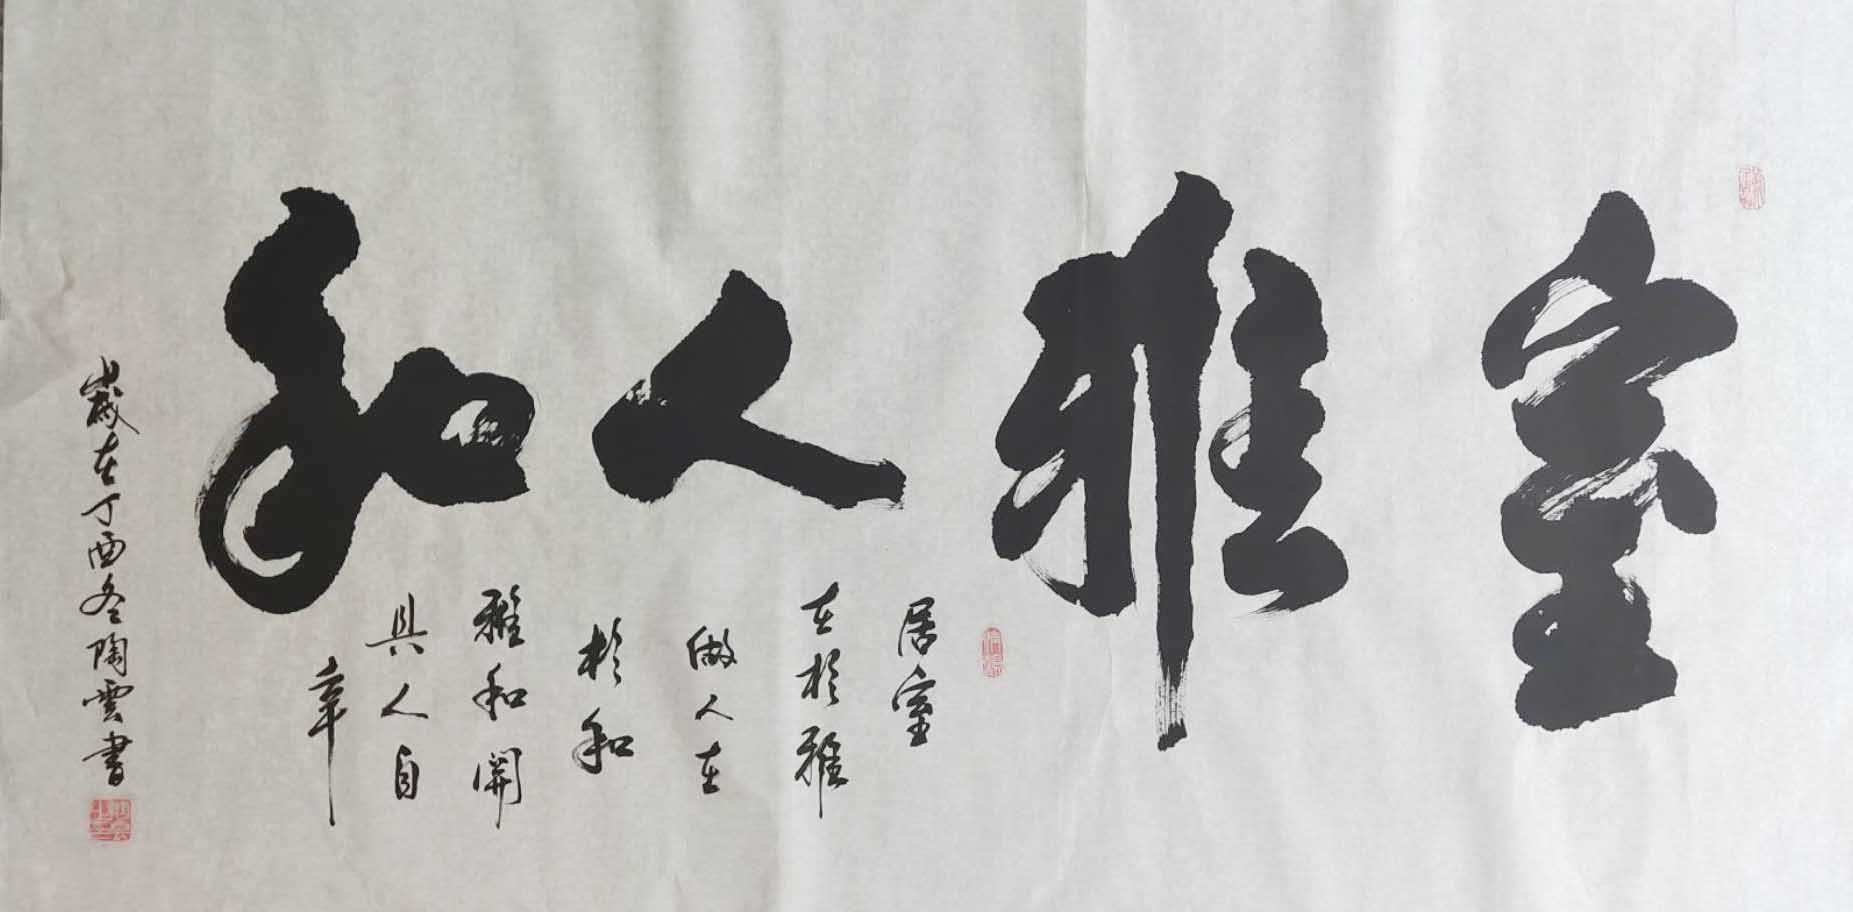 室雅人和
居室
在於雅
做人在
於和
雅和開
具人自
幸
歲在丁酉冬陶雲書